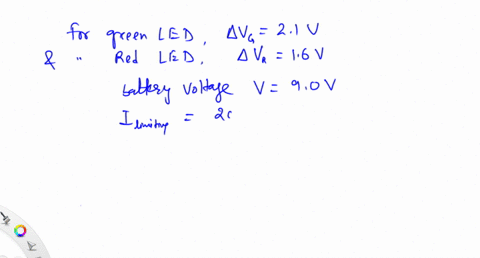 for green LED, ΔV_G = 2.1 V
& " Red LED, ΔV_R = 1.6 V
battery voltage V = 9.0 V
I_limiting = 20